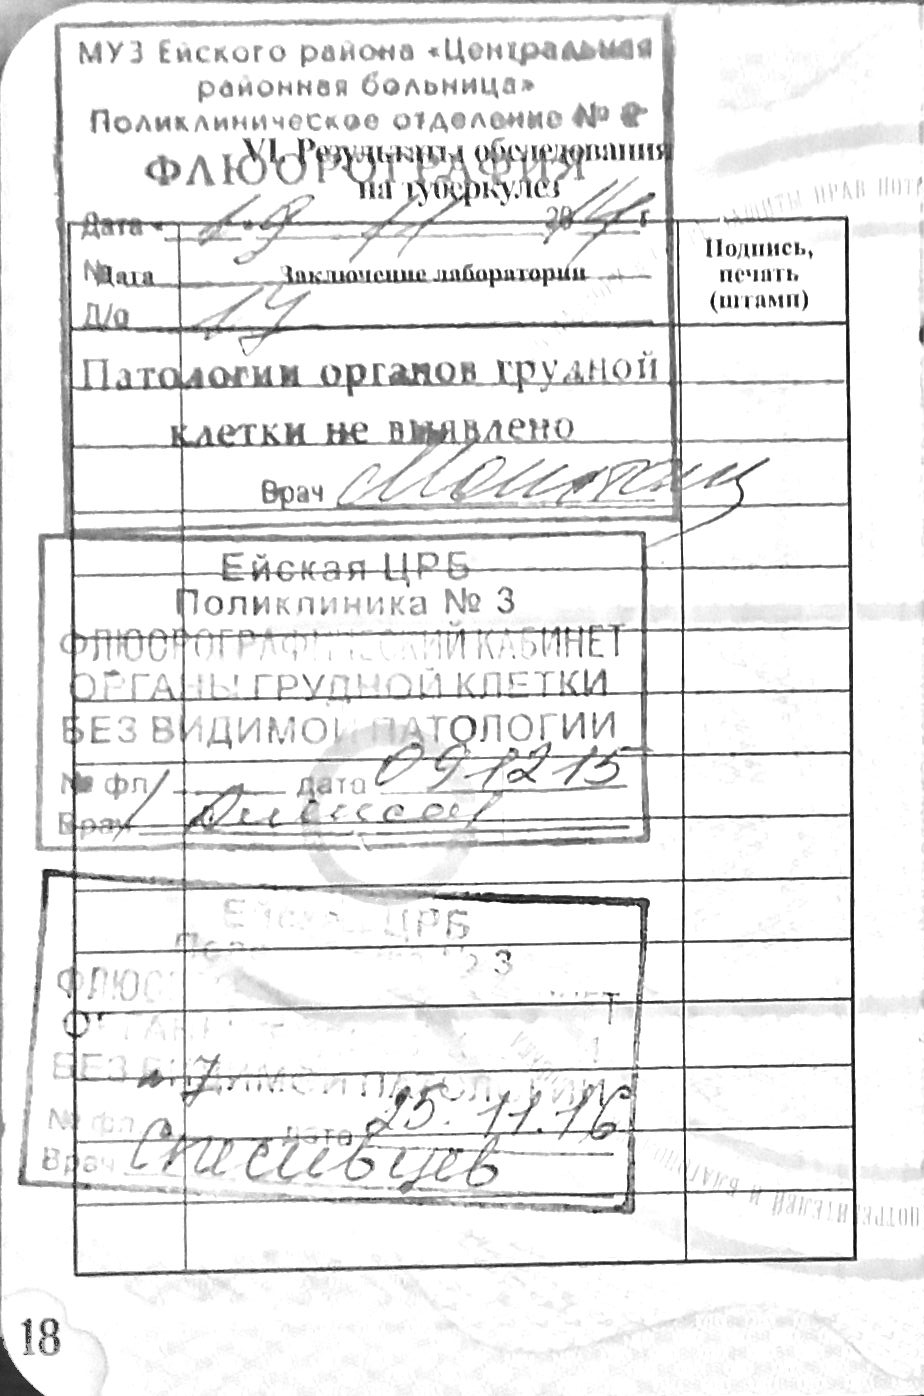 МУЗ Ейского района «Центральная
районная больница»
Поликлиническое отделение №
VI. Результаты обследования
ФЛЮОРОГРАФИЯ
на туберкулез
Дата « » 11 2014 г.
Подпись,
печать
(штамп)
№
Дата Заключение лаборатории
Д/о
Патологии органов грудной
клетки не выявлено
Врач
Ейская ЦРБ
Поликлиника № 3
ФЛЮОРОГРАФИЧЕСКИЙ КАБИНЕТ
ОРГАНЫ ГРУДНОЙ КЛЕТКИ
БЕЗ ВИДИМОЙ ПАТОЛОГИИ
№ фл дата 09 12 15
Врач
Ейская ЦРБ
3
БЕЗ ВИДИМОЙ ПАТОЛОГИИ
№ фл дата 25.11.16
Врач Спесивцев
18